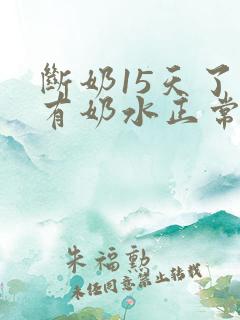 斷奶15天了
有奶水正常
朱福勳
未經同意禁止轉載